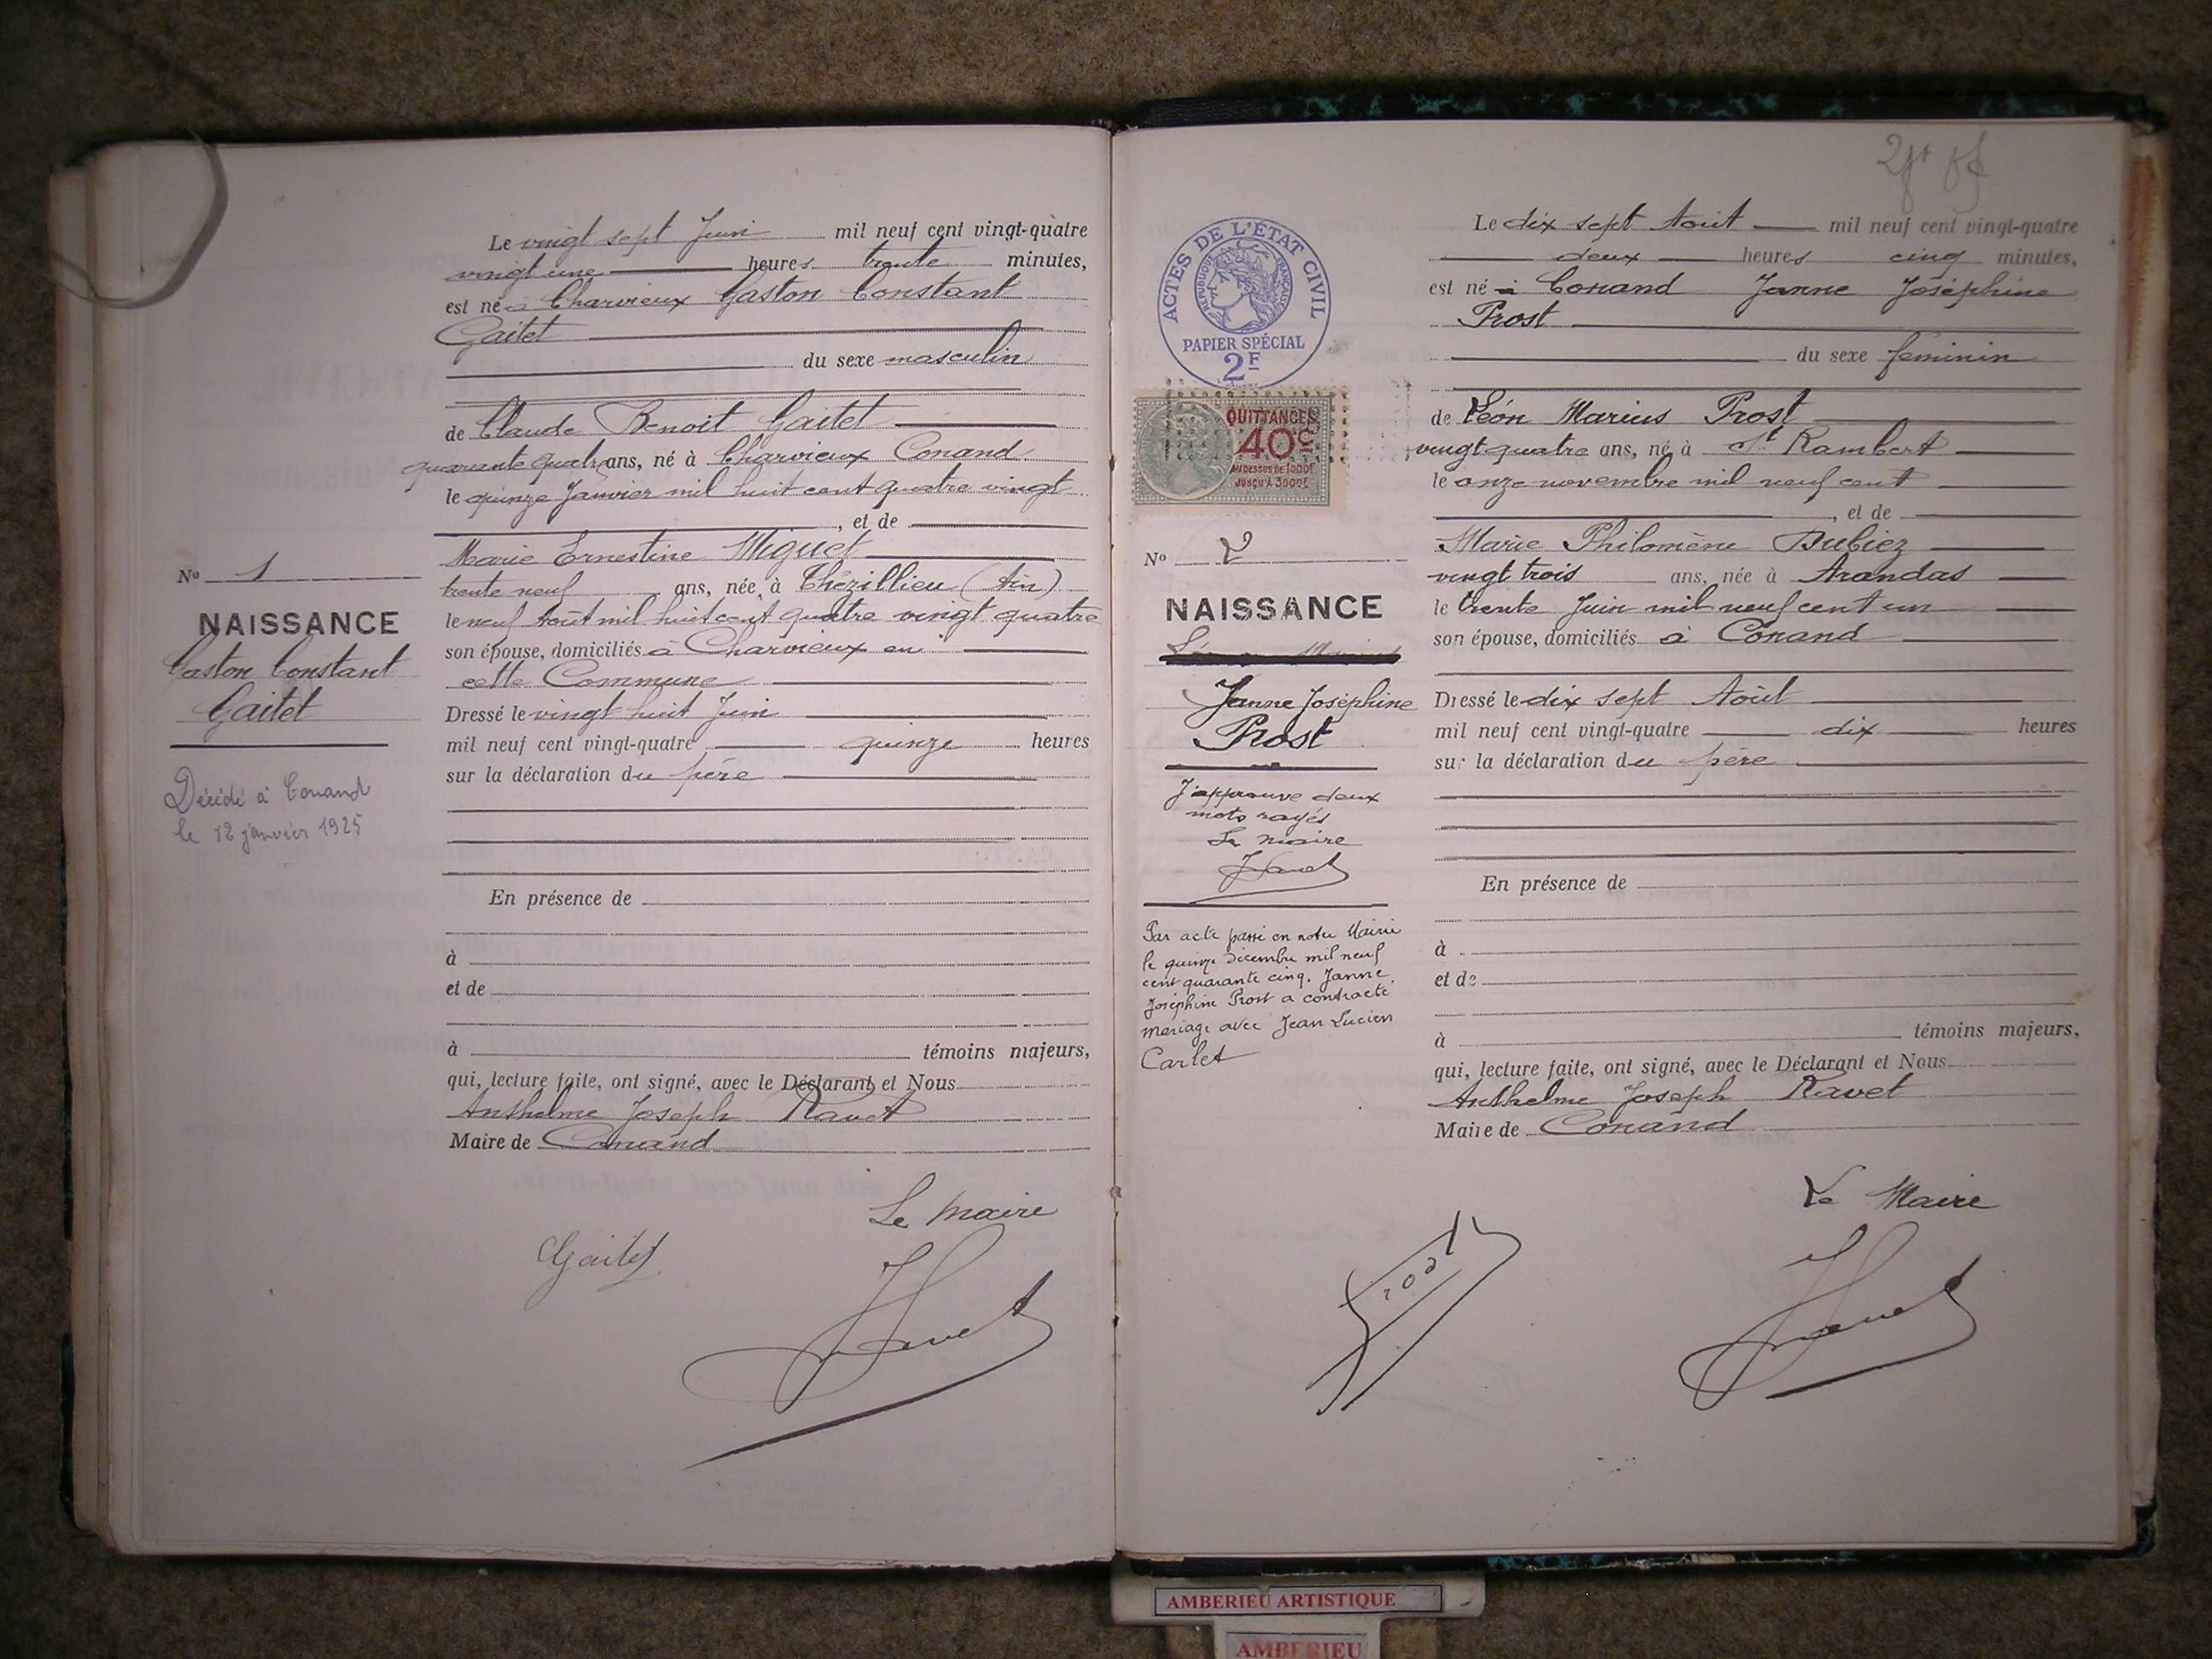 Le vingt sept Juin mil neuf cent vingt-quatre
vingt une heures trente minutes,
est né à Charvieux Gaston Constant
Gaitet
du sexe masculin
de Claude Benoit Gaitet
quarante quatre ans, né à Charvieux Conand
le quinze Janvier mil huit cent quatre vingt
, et de
Marie Ernestine Miguet
trente neuf ans, née à Thézillieu (Ain)
le neuf Août mil huit cent quatre vingt quatre
son épouse, domiciliés à Charvieux en
cette Commune
Dressé le vingt huit Juin
mil neuf cent vingt-quatre quinze heures
sur la déclaration du père
En présence de
à
et de
à témoins majeurs,
qui, lecture faite, ont signé, avec le Déclarant et Nous
Anthelme Joseph Ravet
Maire de Conand
Le maire
Gaitet
Ravet
No 1
NAISSANCE
Gaston Constant
Gaitet
Décédé à Conand
le 12 janvier 1925
ACTES DE L'ÉTAT CIVIL
RÉPUBLIQUE FRANÇAISE
PAPIER SPÉCIAL
2F
QUITTANCES
40c
AU DESSUS DE 1000F
JUSQU'À 3000F
No 2
NAISSANCE
Janne Joséphine
Prost
J'approuve deux
mots rayés
Le maire
Ravet
Par acte passé en notre Mairie
le quinze Décembre mil neuf
cent quarante cinq. Janne
Joséphine Prost a contracté
mariage avec Jean Lucien
Carlet
Le dix sept Août mil neuf cent vingt-quatre
deux heures cinq minutes,
est né à Conand Janne Joséphine
Prost
du sexe féminin
de Léon Marius Prost
vingt quatre ans, né à St Rambert
le onze novembre mil neuf cent
, et de
Marie Philomène Dubiez
vingt trois ans, née à Arandas
le trente Juin mil neuf cent un
son épouse, domiciliés à Conand
Dressé le dix sept Août
mil neuf cent vingt-quatre dix heures
sur la déclaration du père
En présence de
à
et de
à témoins majeurs,
qui, lecture faite, ont signé, avec le Déclarant et Nous
Anthelme Joseph Ravet
Maire de Conand
Le Maire
Prost
Ravet
AMBERIEU ARTISTIQUE
AMBERIEU